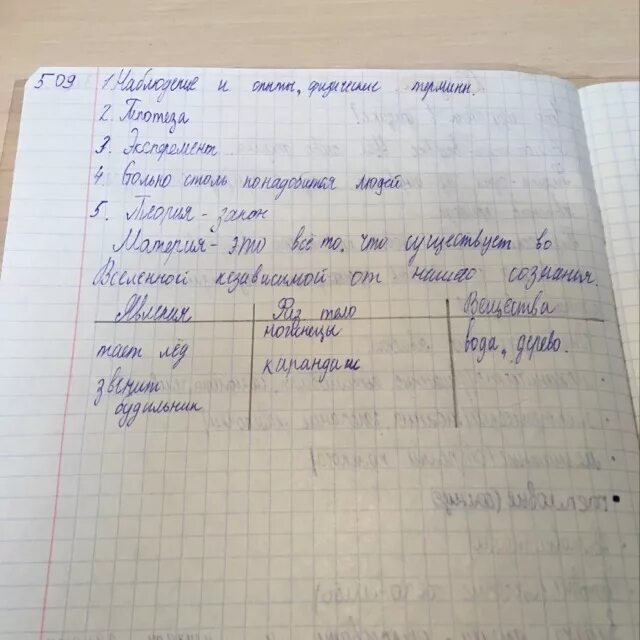 509 1. Наблюдение и опыты, физические термины.
2. Гипотеза
3. Экспремент
4. Столько столь понадобится людей
5. Теория - закон
Материя - это всё то, что существует во
Вселенной независимой от нашего сознания.
Явления Физ тело Вещества
тает лёд ножницы вода, дерево.
звенит карандаш
будильник